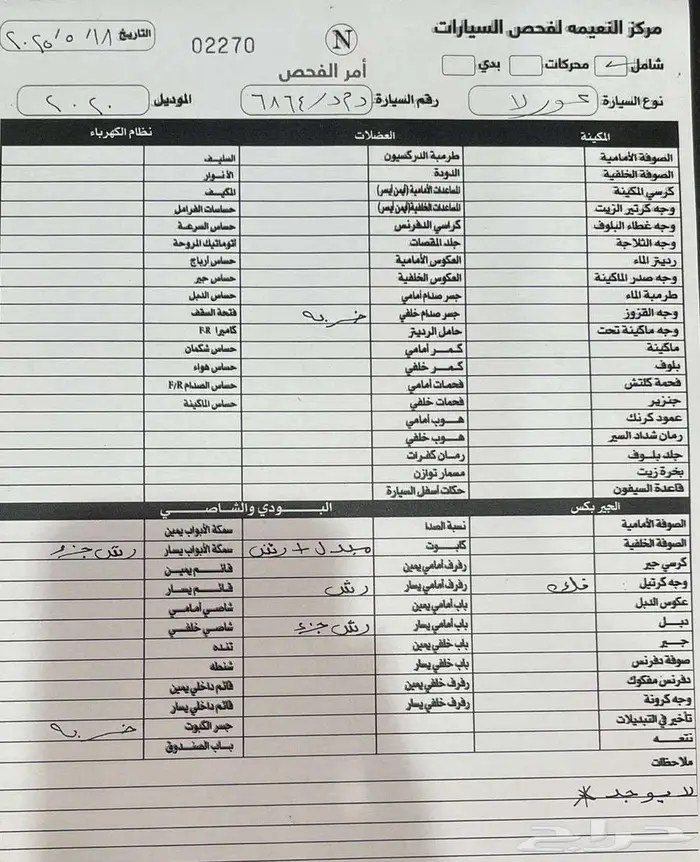 مركز النعيمه لفحص السيارات
N
02270
التاريخ ٢٠٢٥/٥/١٨
أمر الفحص
شامل محركات بدي
نوع السيارة: كورلا رقم السيارة: ٦٨٦٤/د م د الموديل ٢٠٢٠
المكينة العضلات نظام الكهرباء
الصوفة الأمامية طرمبة الدركسيون السليف
الصوفة الخلفية الدودة الأنوار
كرسي المكينة المساعدات الأمامية (أيمن أيسر) المكيف
وجه كرتير الزيت المساعدات الخلفية (أيمن أيسر) حساسات الفرامل
وجه غطاء البلوف كراسي الدفرنس حساس السرعة
وجه الثلاجة جلد المقصات اتوماتيك المروحة
رديتر الماء العكوس الأمامية حساس أرباح
وجه صدر الماكينة العكوس الخلفية حساس جير
طرمبة الماء جسر صدام أمامي حساس الدبل
وجه القزوز جسر صدام خلفي ضربه فتحة السقف
وجه ماكينة تحت حامل الرديتر كاميرا F.R
ماكينة كمر أمامي حساس شكمان
بلوف كمر خلفي حساس هواء
فحمة كلتش فحمات أمامي حساس الصدام F/R
جنزير فحمات خلفي حساس الماكينة
عمود كرنك هوب أمامي
رمان شداد السير هوب خلفي
جلد بلوف رمان كفرات
بخرة زيت مسمار توازن
قاعدة السيفون حكات أسفل السيارة
الجير بكس البودي والشاصي
الصوفة الأمامية نسبة الصدا سمكة الأبواب يمين
الصوفة الخلفية كابوت مبدل + رش سمكة الأبواب يسار رش جزء
كرسي جير رفرف أمامي يمين قائم يمين
وجه كرتيل فك رفرف أمامي يسار رش قائم يسار
عكوس الدبل باب أمامي يمين شاصي أمامي
دبل باب أمامي يسار رش جزء شاصي خلفي
جير باب خلفي يمين تنده
صوفة دفرنس باب خلفي يسار شنطه
دفرنس مفكوك رفرف خلفي يمين قائم داخلي يمين
وجه كرونة رفرف خلفي يسار قائم داخلي يسار
تأخير في التبديلات جسر الكبوت ضربه
نتعه باب الصندوق
ملاحظات
لا يوجد *
حراج